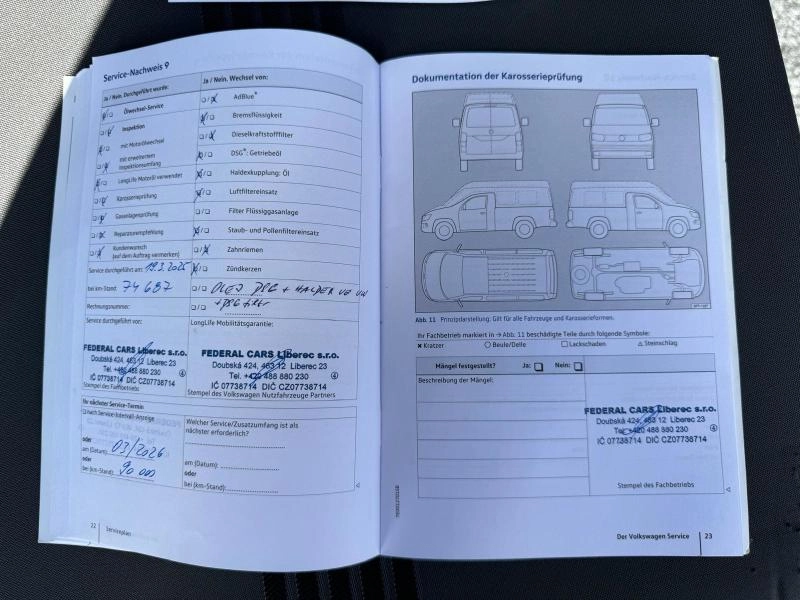 Service-Nachweis 9
Ja / Nein. Durchgeführt wurde:
Ölwechsel-Service
Inspektion
mit Motorölwechsel
mit erweitertem
Inspektionsumfang
LongLife Motoröl verwendet
Karosserieprüfung
Gasanlagenprüfung
Reparaturempfehlung
Kundenwunsch
(auf dem Auftrag vermerken)
Service durchgeführt am: 19.3.2025
bei km-Stand: 74 687
Rechnungsnummer:
Service durchgeführt von:
FEDERAL CARS Liberec s.r.o.
Doubská 424, 463 12 Liberec 23
Tel. +420 488 880 230
IČ 07738714 DIČ CZ07738714
4
Stempel des Fachbetriebs
Ihr nächster Service-Termin
nach Service-Intervall-Anzeige
oder
am (Datum): 03/2026
oder
bei (km-Stand): 90 000
Ja / Nein. Wechsel von:
AdBlue®
Bremsflüssigkeit
Dieselkraftstofffilter
DSG®: Getriebeöl
Haldexkupplung: Öl
Luftfiltereinsatz
Filter Flüssiggasanlage
Staub- und Pollenfiltereinsatz
Zahnriemen
Zündkerzen
OLEJ DSG + HALDEX
+ DSG filtr
LongLife Mobilitätsgarantie:
FEDERAL CARS Liberec s.r.o.
Doubská 424, 463 12 Liberec 23
Tel. +420 488 880 230
IČ 07738714 DIČ CZ07738714
4
Stempel des Volkswagen Nutzfahrzeuge Partners
Welcher Service/Zusatzumfang ist als
nächster erforderlich?
am (Datum):
oder
bei (km-Stand):
22
Serviceplan
Dokumentation der Karosserieprüfung
Abb. 11 Prinzipdarstellung: Gilt für alle Fahrzeuge und Karosserieformen.
Ihr Fachbetrieb markiert in → Abb. 11 beschädigte Teile durch folgende Symbole:
Kratzer
Beule/Delle
Lackschaden
Steinschlag
Mängel festgestellt?
Ja:
Nein:
Beschreibung der Mängel:
FEDERAL CARS Liberec s.r.o.
Doubská 424, 463 12 Liberec 23
Tel. +420 488 880 230
IČ 07738714 DIČ CZ07738714
4
Stempel des Fachbetriebs
Der Volkswagen Service
23